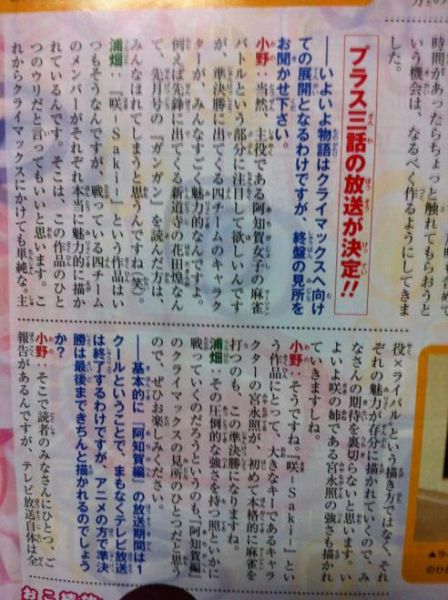 時間があったらちょっと触れてもらおうと
いう機会は、なるべく作るようにしてきま
した。
プラス三話の放送が決定!!
――いよいよ物語はクライマックスへ向け
ての展開となるわけですが、終盤の見所を
お聞かせ下さい。
小野：当然、主役である阿知賀女子の麻雀
バトルという部分に注目して欲しいんです
が、準決勝に出てくる四チームのキャラク
ターが、みんなすごく魅力的なんですよ。
例えば先鋒に出てくる新道寺の花田煌なん
て、先月号の『ガンガン』を読んだ方は、
みんなほれてしまうと思うんですね（笑）。
浦畑：『咲 -Saki-』という作品はい
つもそうなんですが、戦っている四チーム
のメンバーがそれぞれ本当に魅力的に描か
れているんです。そこは、この作品のひと
つのウリだと言ってもいいと思います。こ
れからクライマックスにかけても単純な“主
役×ライバル”という描き方ではなく、それ
ぞれの魅力が存分に描かれていくので、み
なさんの期待を裏切らないと思います。い
よいよ咲の姉である宮永照の強さも描かれ
ていきますしね。
小野：そうですね。『咲 -Saki-』とい
う作品にとって、大きなキーであるキャラ
クターの宮永照が、初めて本格的に麻雀を
打つのも、この準決勝になりますね。
浦畑：その圧倒的な強さを持つ照といかに
戦っていくのだろうというのも、『阿知賀編』
のクライマックスの見所のひとつだと思う
ので、ぜひお楽しみください。
――基本的に『阿知賀編』の放送期間は一
クールということで、まもなくテレビ放送
は終了するわけですが、アニメの方で準決
勝は最後まできちんと描かれるのでしょう
か？
小野：そこで読者のみなさんにひとつ、ご
報告があるんですが、テレビ放送自体は全